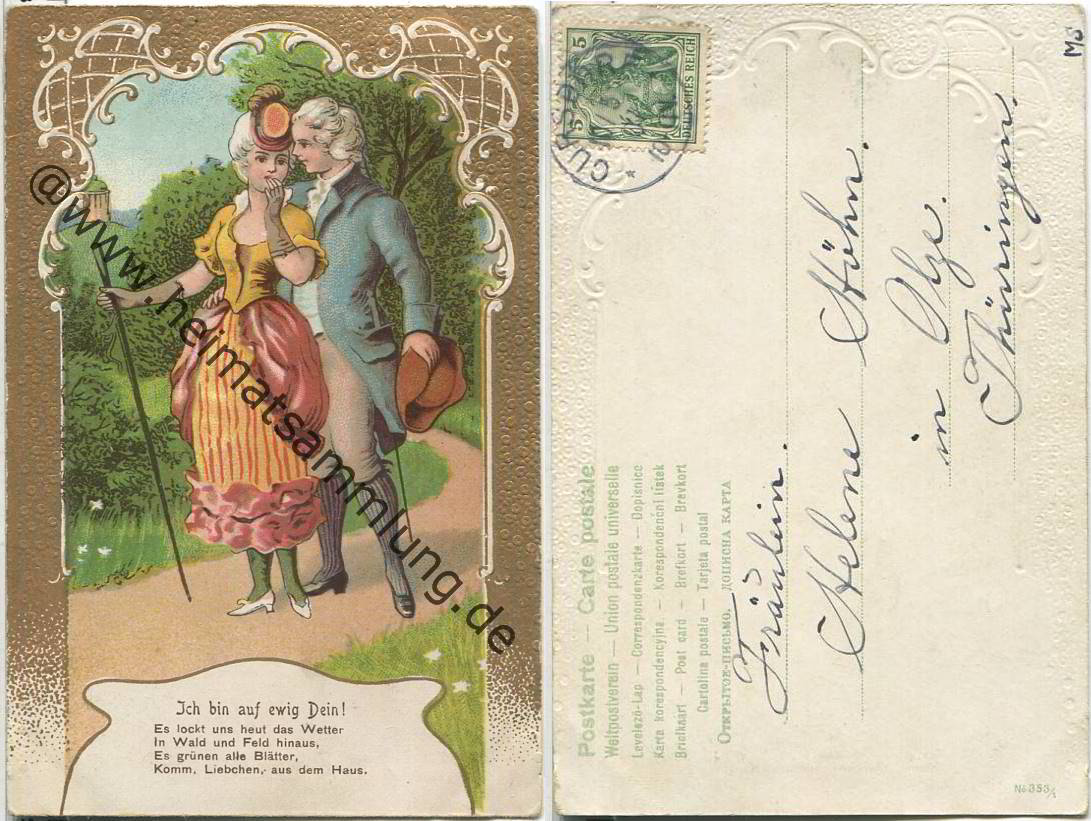 Ich bin auf ewig Dein!
Es lockt uns heut das Wetter
In Wald und Feld hinaus,
Es grünen alle Blätter,
Komm, Liebchen, aus dem Haus.
@www.heimatsammlung.de
5 5
DEUTSCHES REICH
MJ
Postkarte — Carte postale
Weltpostverein — Union postale universelle
Levelező-Lap — Correspondenzkarte — Dopisnice
Karta korespondencyjna — Korespondenční listek
Briefkaart — Post card — Brefkort — Brevkort
Cartolina postale — Tarjeta postal
ОТКРЫТОЕ-ПИСЬМО. ДОПИСНА КАРТА
Fräulein.
Helene Höhn.
in Olze.
Thüringen.
No 353/1